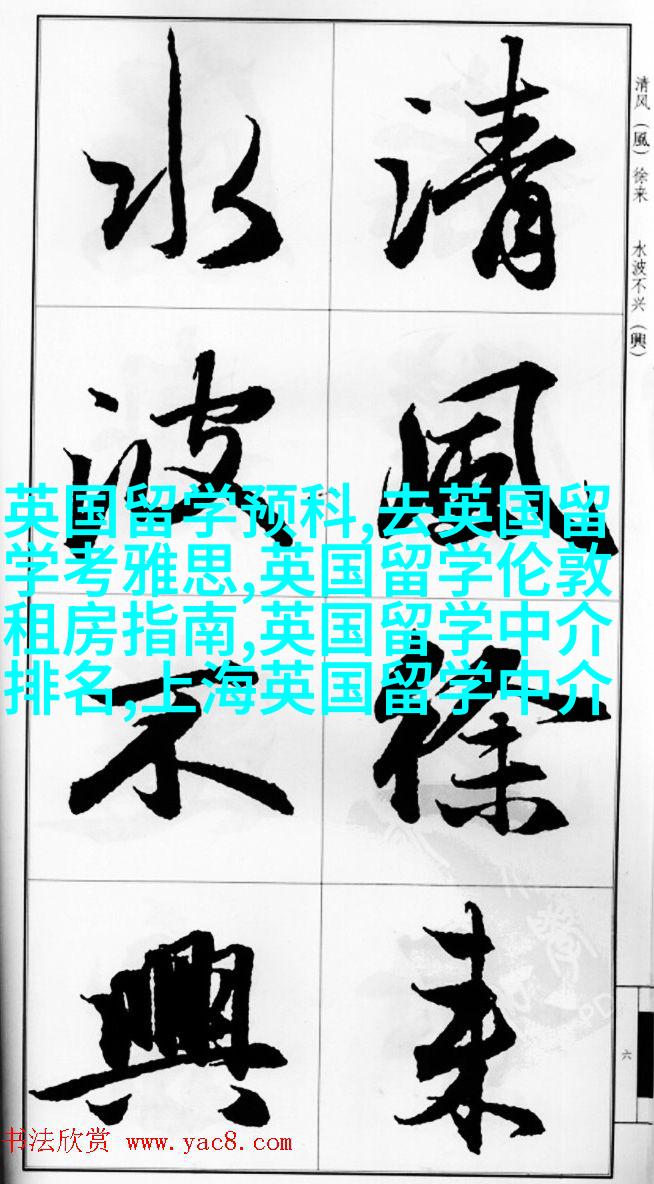 清風徐来
水波不興
清风（風）徐来　水波不兴（興）
英国留学预科,去英国留
学考雅思,英国留学伦敦
租房指南,英国留学中介
排名,上海英国留学中介
六
书法欣赏 www.yac8.com